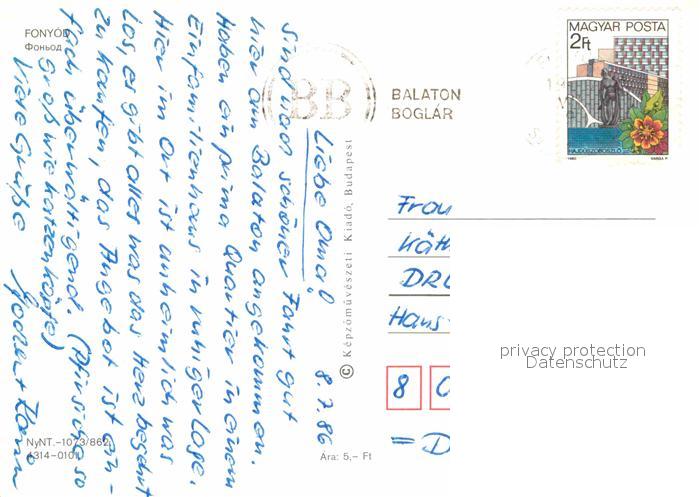 FONYÓD
Фоньод
MAGYAR POSTA
2Ft
HAJDÚSZOBOSZLÓ
1980
VARGA P.
BB
BALATON
BOGLÁR
Liebe Oma! 8.7.86
Sind nach schöner Fahrt gut
hier am Balaton angekommen.
Haben ein prima Quartier in einem
Einfamilienhaus in ruhiger Lage.
Hier im Ort ist unheimlich was
los, es gibt alles was das Herz begehrt
zu kaufen, das Angebot ist ein-
fach überwältigend. (Pfirsiche so
groß wie Katzenköpfe)
Viele Grüße
Képzőművészeti Kiadó, Budapest
Frau
Käth
Hans-
8
= D
privacy protection
Datenschutz
NyNT.-1073/862.
4314-0101
Ára: 5,- Ft